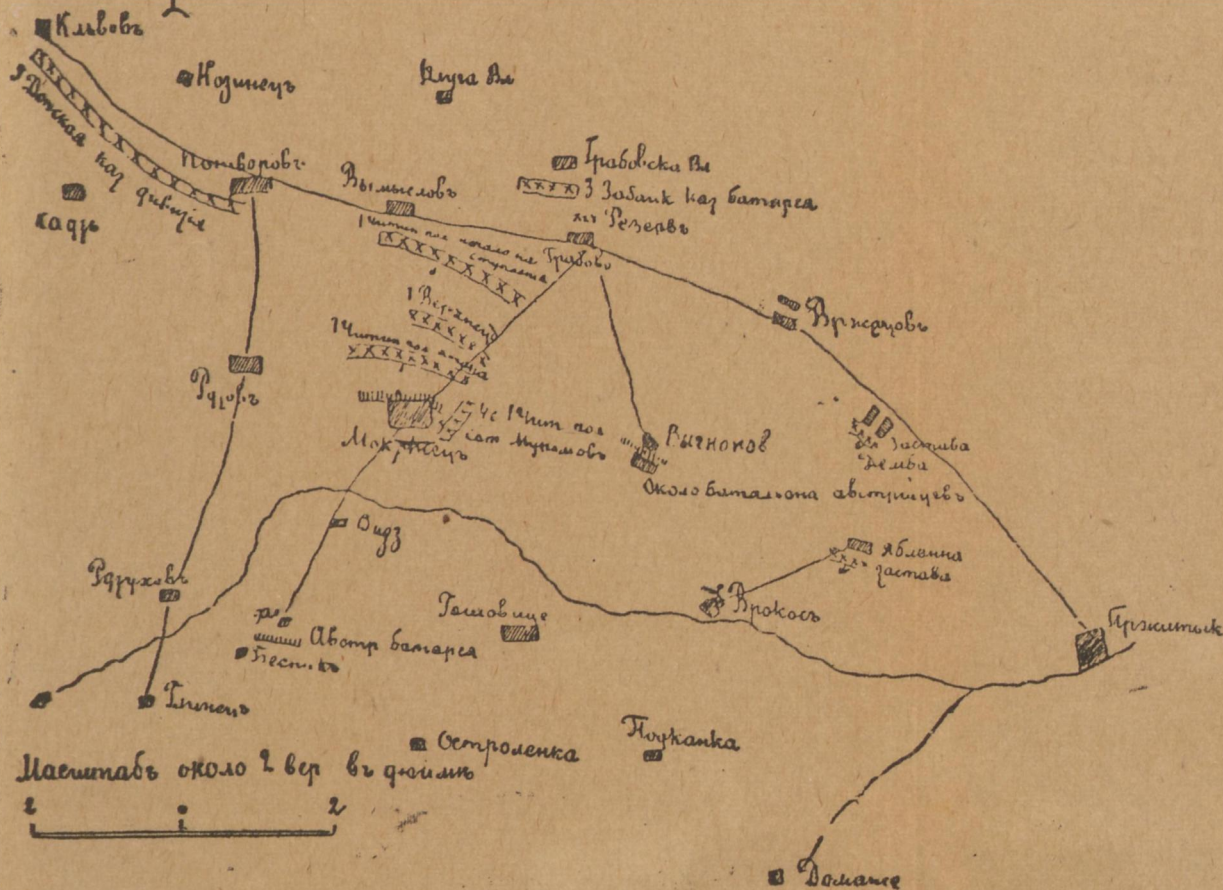 Кльвовъ
Козинецъ
Длуга Вл
3 Донская каз дивизія
Кадзь
Потворовъ
Вымысловъ
Грабовска Вл
3 Забайк каз батарея
Резервъ
Грабово
1 Читин пол начало на
ступленія
1 Верхнеуд
1 Читин пол атака
Вржещовъ
Рдзовъ
4 с 1 Чит пол
сот Мунгаловъ
Мокржецъ
Вычноков
Около батальона австрійцевъ
Застава
Демба
Видз
Яблонна
застава
Врокось
Рдзуховъ
Гошовице
Пржитык
Австр батарея
Бестикъ
Глинецъ
Остроленка
Подканка
Масштабъ около 2 вер въ дюймѣ
2 1 2
Доманже